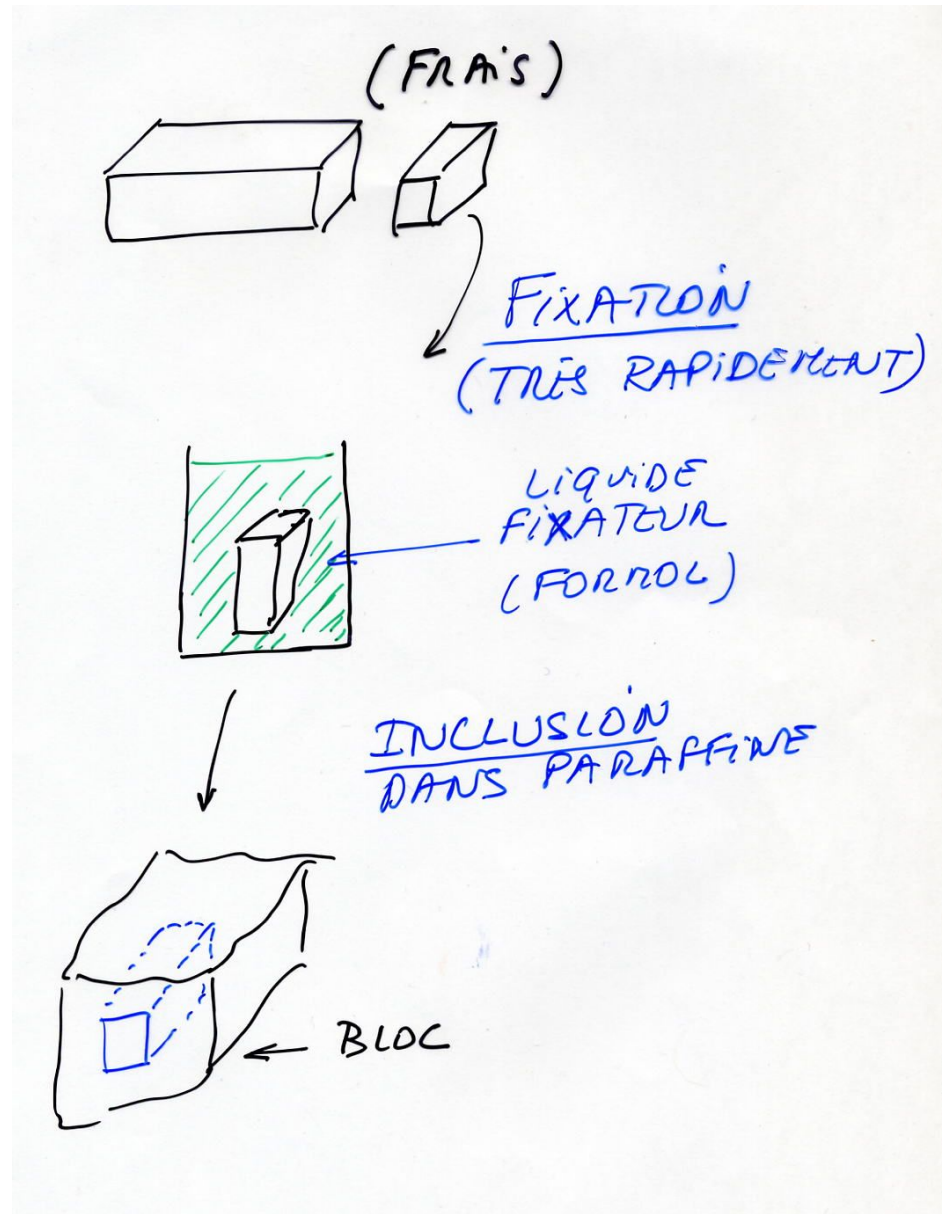 (FRAIS)
FIXATION
(TRÈS RAPIDEMENT)
LIQUIDE
FIXATEUR
(FORMOL)
INCLUSION
DANS PARAFFINE
BLOC